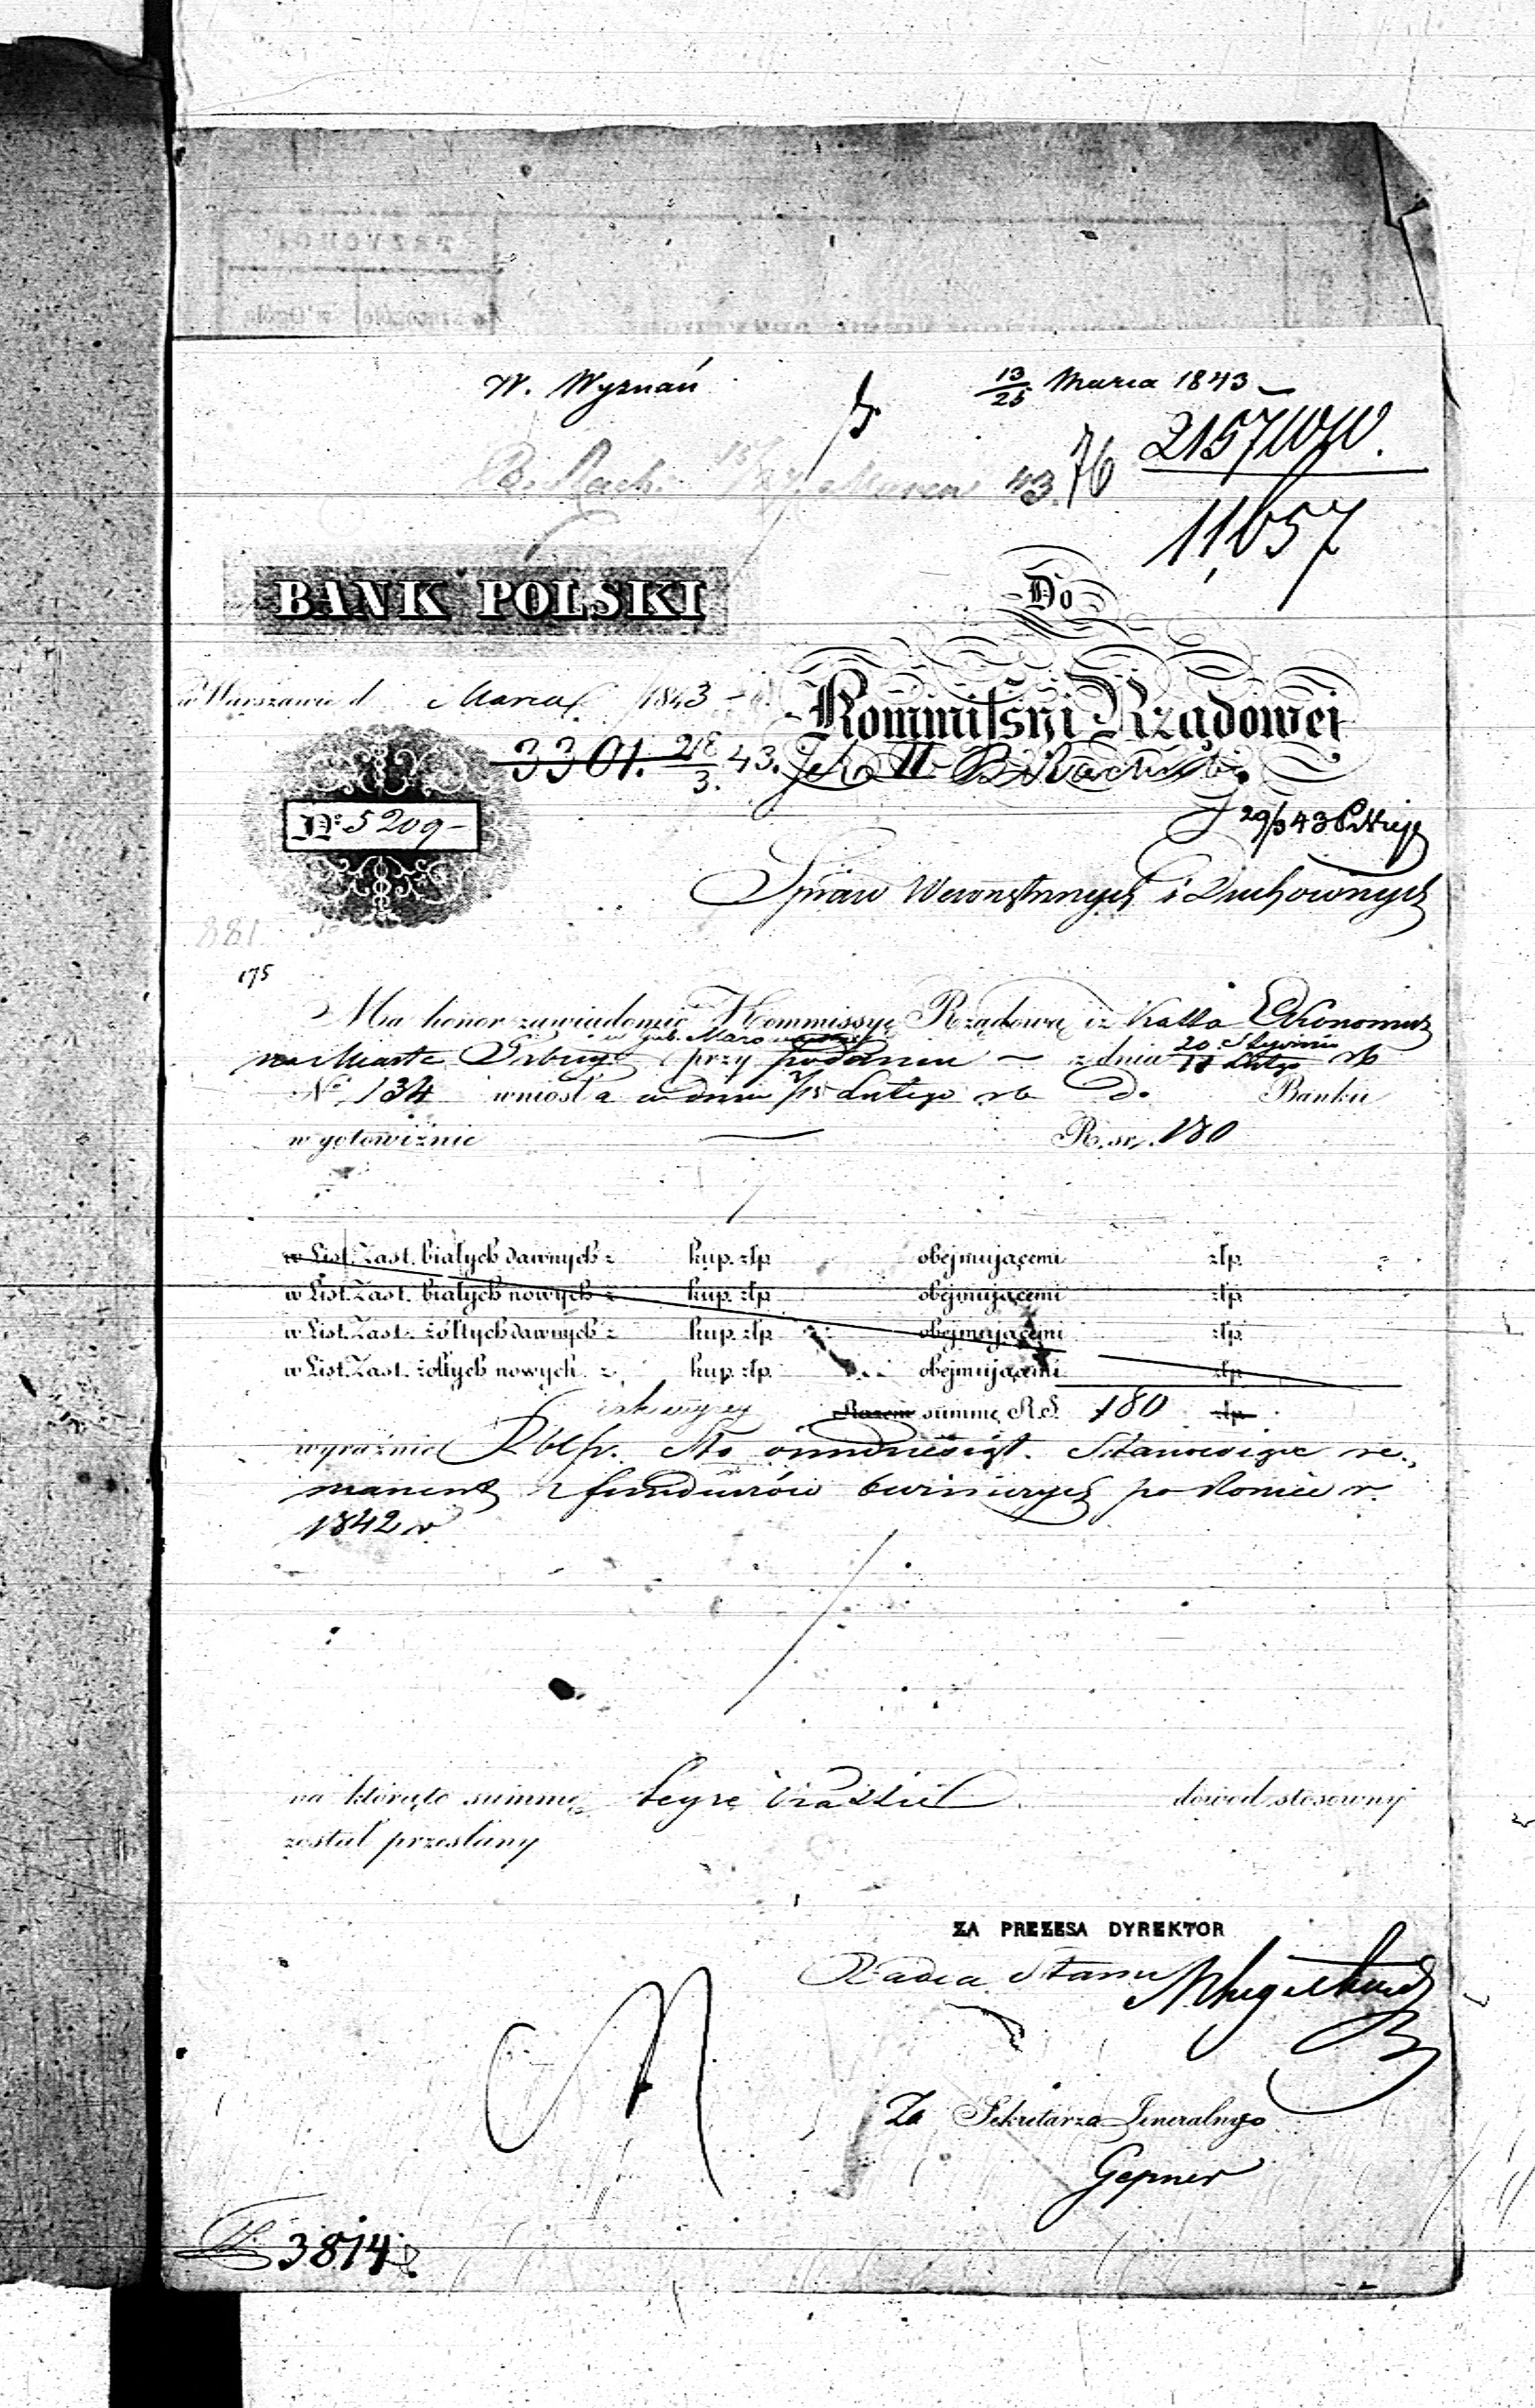 W. Wyznań
13/25 Marca 1843
2157 WW.
76
11,657
BANK POLSKI
Do
w Warszawie d Marca 1843
Kommissyi Rządowéi
3301. 43.
№ 5209
Spraw Wewnętrznych i Duchownych
881
175
Ma honor zawiadomić Kommissyę Rządową iż Kassa Ekonomicz
w Gub. Mazow
na Miasta przy podaniu z dnia 20 Stycznia
Lutego rb
№ 134 wniosła w dniu 3/15 Lutego rb do Banku
w gotowiznie R. sr. 180
w List. Zast. białych dawnych z kup. złp. obejmującemi złp.
w List. Zast. białych nowych z kup. złp. obejmującemi złp.
w List. Zast. żółtych dawnych z kup. złp. obejmującemi złp.
w List. Zast. żółtych nowych z kup. złp. obejmującemi złp.
Razem summę R. S. 180 złp.
wyraźnie Rbls. Sto ośmdziesiąt. Stanowiące re-
manent z funduszów po końcu r.
1842 r
na którąto summę tejże Kassie dowód stosowny
został przesłany
ZA PREZESA DYREKTOR
Radca Stanu
Za Sekretarza Jeneralnego
Gepner
3814